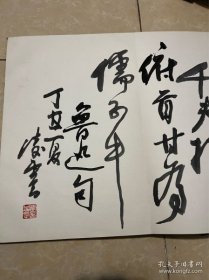 千夫指
俯首甘为
孺子牛
鲁迅句
丁亥夏
孔夫子旧书网